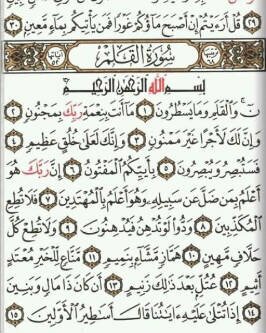 ٢٩ قُلْ أَرَءَيْتُمْ إِنْ أَصْبَحَ مَآؤُكُمْ غَوْرًا فَمَن يَأْتِيكُم بِمَآءٍ مَّعِينٍۭ ٣٠
سُورَةُ الْقَلَمِ
بِسْمِ اللَّهِ الرَّحْمَٰنِ الرَّحِيمِ
نٓ ۚ وَالْقَلَمِ وَمَا يَسْطُرُونَ ١ مَآ أَنتَ بِنِعْمَةِ رَبِّكَ بِمَجْنُونٍ ٢
وَإِنَّ لَكَ لَأَجْرًا غَيْرَ مَمْنُونٍ ٣ وَإِنَّكَ لَعَلَىٰ خُلُقٍ عَظِيمٍ ٤
فَسَتُبْصِرُ وَيُبْصِرُونَ ٥ بِأَييِّكُمُ الْمَفْتُونُ ٦ إِنَّ رَبَّكَ هُوَ
أَعْلَمُ بِمَن ضَلَّ عَن سَبِيلِهِۦ وَهُوَ أَعْلَمُ بِالْمُهْتَدِينَ ٧ فَلَا تُطِعِ
الْمُكَذِّبِينَ ٨ وَدُّوا۟ لَوْ تُدْهِنُ فَيُدْهِنُونَ ٩ وَلَا تُطِعْ كُلَّ
حَلَّافٍ مَّهِينٍ ١٠ هَمَّازٍ مَّشَّآءٍۭ بِنَمِيمٍ ١١ مَّنَّاعٍ لِّلْخَيْرِ مُعْتَدٍ
أَثِيمٍ ١٢ عُتُلٍّۭ بَعْدَ ذَٰلِكَ زَنِيمٍ ١٣ أَن كَانَ ذَا مَالٍ وَبَنِينَ
١٤ إِذَا تُتْلَىٰ عَلَيْهِ ءَايَٰتُنَا قَالَ أَسَٰطِيرُ الْأَوَّلِينَ ١٥